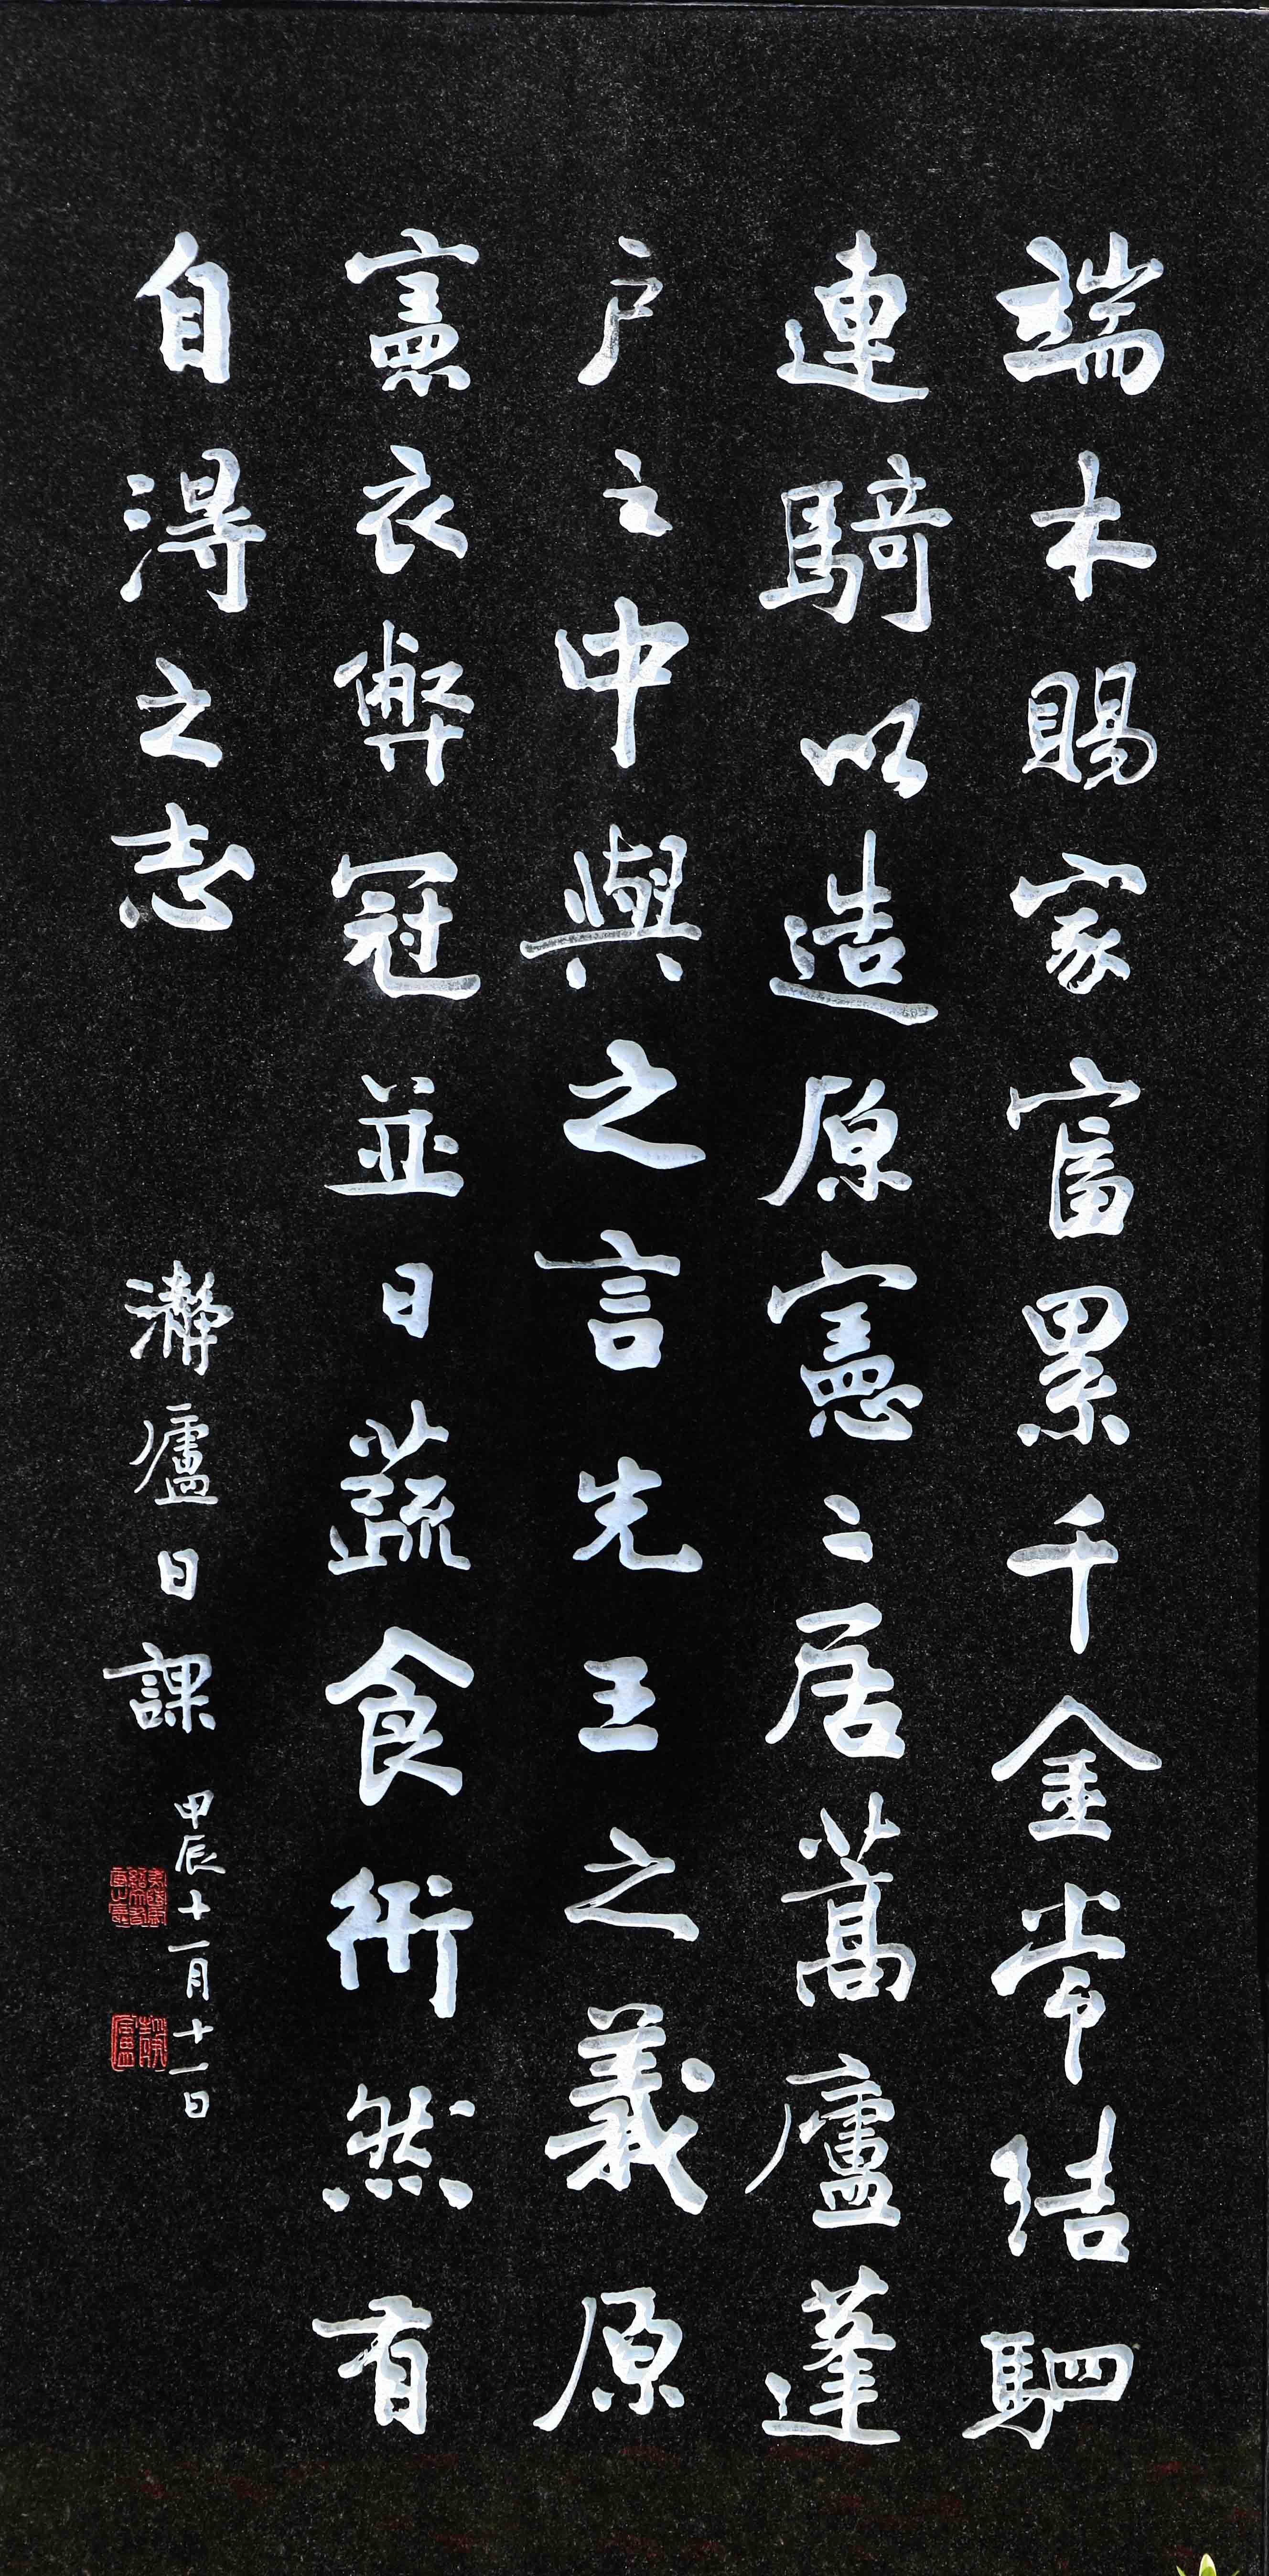 端木賜家富累千金常結駟
連騎以造原憲二居蒿廬蓬
户之中與之言先王之義原
憲衣弊冠並日蔬食衎然有
自得之志
瀞廬日課
甲辰十一月十一日